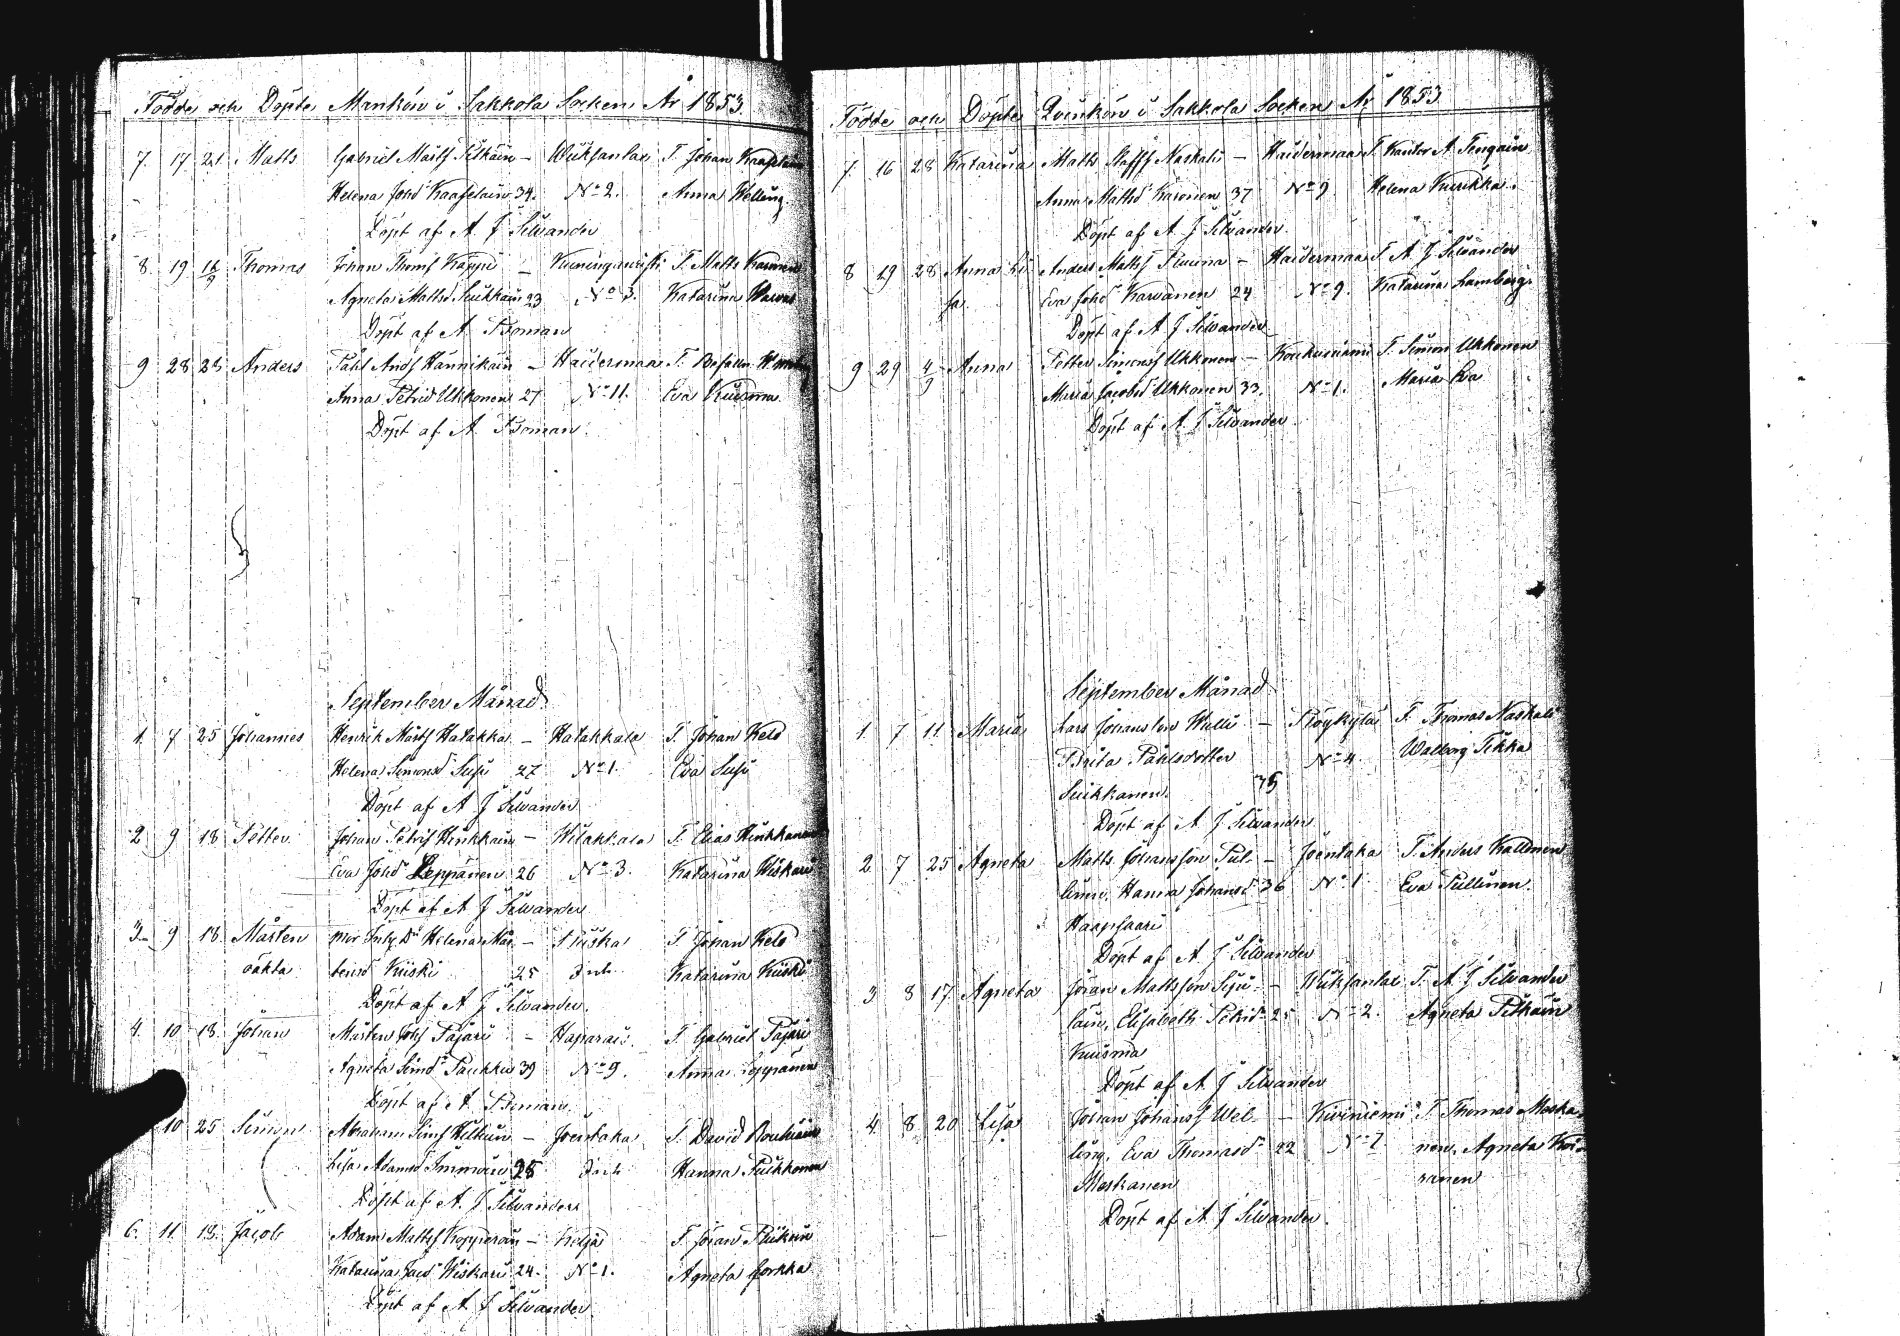 Födde och Döpte Mankön i Sakkola Socken År 1853.
7. 17 21 Matts Gabriel Matts Pitkäin – Wiiksanlax T. Johan Kaapelain
Helena Johd Kaapelain 34. No 2. Anna Welling
Döpt af A J Silvander
8. 19 11/9 Thomas Johan Thomss Käppi – Kuninganristi T. Matts Karonen
Agneta Mattsd Suikkain 23 No 3. Katarina
Döpt af A. Boman
9 28 28 Anders Påhl Ands Hännikäin – Haidermaa T.
Anna Petrid Ukkonen 27 No 11. Eva Kuisma
Döpt af A Boman.
September Månad
1. 7 25 Johannes Henrik Mårts Hatakka – Hatakkala T. Johan Kelo
Helena Simonsd Susi 27 No 1. Eva Susi
Döpt af A J Silvander
2 9 18 Petter Johan Petris Hinkkain – Wilakkala T. Elias Hinkkanen
Eva Johd Leppänen 26 No 3. Katarina Wiskari
Döpt af A J Silvander
3 9 18 Mårten mor Inh. Dr Helena Mår – Piiska T Johan Kelo
oäkta tensd Kiiski 25 Inh. Katarina Kiiski
Döpt af A J Silvander.
4. 10 18 Johan Mårten Johs Pajari – Haparais. T. Gabriel Pajari
Agneta Simd Paukku 39 No 9. Anna Leppänen
Döpt af A Boman.
10 25 Simon Abraham Sims Hilkuin – Joentaka T. David
Lisa Adamsd Immoin 28 Inh. Hanna Puikkonen
Döpt af A. J Silvander
6. 11 18. Jacob Adam Mattss Kopperoin – Kelja T. Johan Piikuin
Katarina Jacd Wiskari 24. No 1. Agneta Jorkka
Döpt af A J Silvander
Födde och Döpte Qvinkön i Sakkola Socken År 1853
7. 16 28 Katarina Matts Staffs Naskali – Haidermaa T. Kantor A Tengain
Anna Mattsd Karonen 37 No 9. Helena Kuirikka.
Döpt af A J Silvander.
8 29 28 Anna Li Anders Mattss – Haidermaa T A J Silvander
sa. Eva Johd Karvanen 24 No 9. Katarina Lamberg
Döpt af A J Silvander
9 29 4/9 Anna Petter Simonss Ukkonen – Koukunniemi T. Simon Ukkonen
Maria Jacobsd Ukkonen 33. No 1. Maria Eva
Döpt af A J Silvander
September Månad
1. 7 11 Maria Lars Johansson Willi – Röykylä T. Thomas Naskali
Brita Påhlsdotter No 4. Walborg Tikka
Suikkanen. 35
Döpt af A J Silvander
2 7 25 Agneta Matts Johansson Pul – Joentaka T. Anders Kallonen
linen, Hanna Johansd 36 No 1 Eva Pullinen.
Haapsaari
Döpt af A J Silvander
3 8 17 Agneta Johan Mattsson Sipi – Wiiksanlax T. A J Silvander
läin, Elisabeth Petrid 25 No 2. Agneta Pitkäin
Kuisma
Döpt af A J Silvander
4. 8 20 Lisa Johan Johanss Wel – Kiviniemi T. Thomas Moska
ling, Eva Thomasd 22 No 7 nen, Agneta Kor
Meskanen ranen
Döpt af A J Silvander.